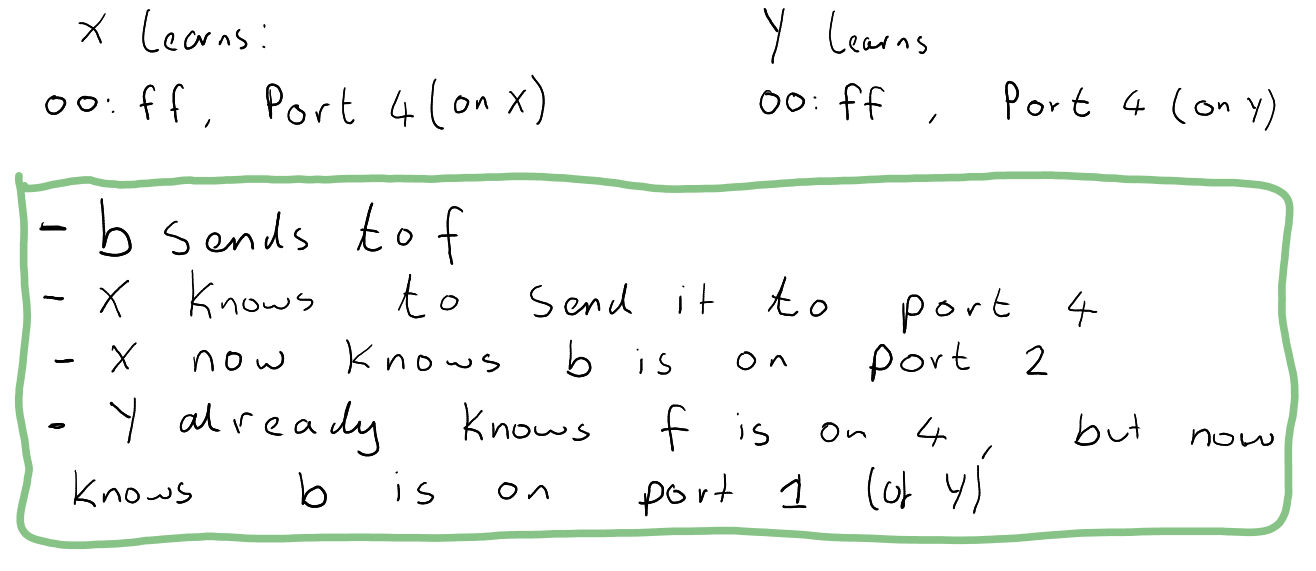 X learns:
Y learns
00:ff, Port 4 (on X)
00:ff, Port 4 (on Y)
- b sends to f
- X knows to send it to port 4
- X now knows b is on port 2
- Y already knows f is on 4, but now
knows b is on port 1 (of Y)